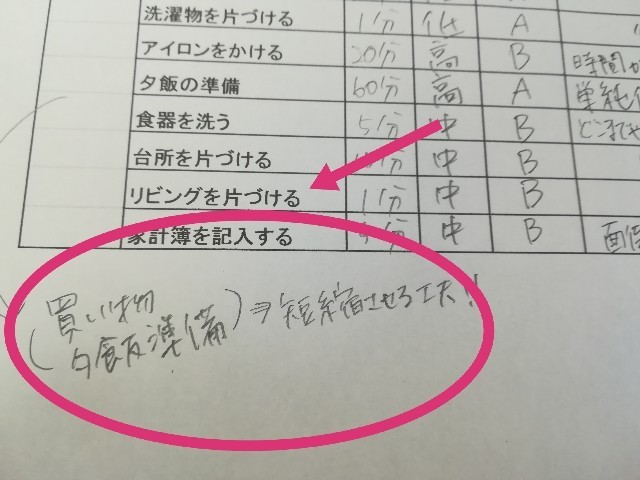 洗濯物を片づける 1分 低 A
アイロンをかける 20分 高 B 時間が
夕飯の準備 60分 高 A 単純
食器を洗う 5分 中 B
台所を片づける 分 中 B
リビングを片づける 1分 中 B
家計簿を記入する 分 中 B 面倒
(買い物
夕飯準備)⇒短縮させる工夫!